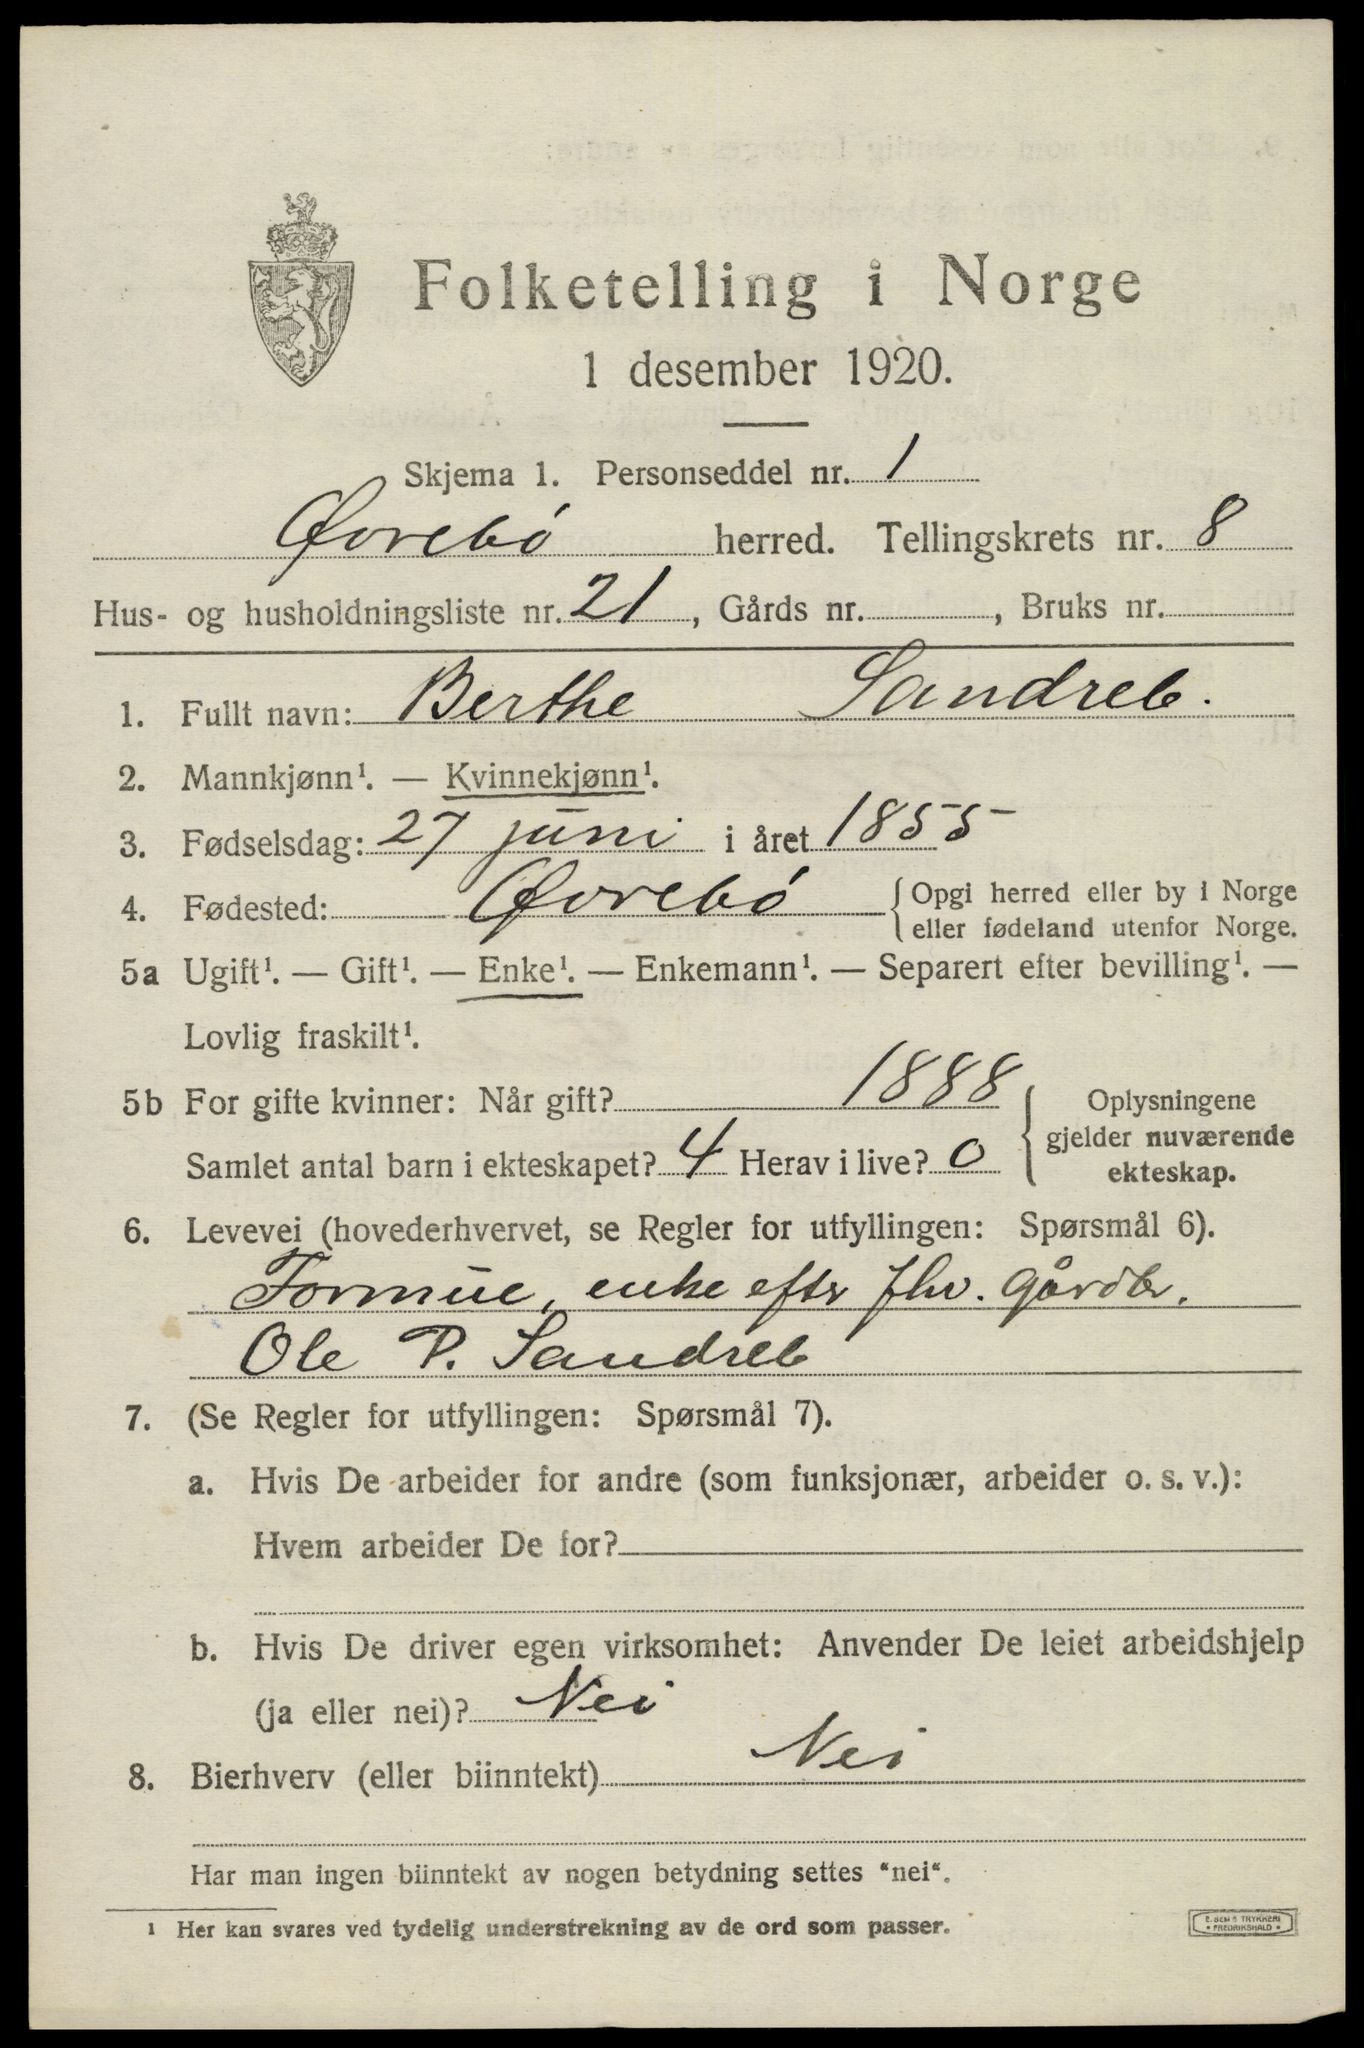 Folketelling i Norge
1 desember 1920.
Skjema 1. Personseddel nr. 1
Øvrebø herred. Tellingskrets nr. 8
Hus- og husholdningsliste nr. 21, Gårds nr. , Bruks nr.
1. Fullt navn: Berthe Sandreb.
2. Mannkjønn¹. — Kvinnekjønn¹.
3. Fødselsdag: 27 juni i året 1855
4. Fødested: Øvrebø { Opgi herred eller by i Norge
eller fødeland utenfor Norge.
5a Ugift¹. — Gift¹. — Enke¹. — Enkemann¹. — Separert efter bevilling¹. —
Lovlig fraskilt¹.
5b For gifte kvinner: Når gift? 1888
Samlet antal barn i ekteskapet? 4 Herav i live? 0
Oplysningene
gjelder nuværende
ekteskap.
6. Levevei (hovederhvervet, se Regler for utfyllingen: Spørsmål 6).
Formue, enke efter fhv. Gårdbr.
Ole P. Sandreb
7. (Se Regler for utfyllingen: Spørsmål 7).
a. Hvis De arbeider for andre (som funksjonær, arbeider o. s. v.):
Hvem arbeider De for?
b. Hvis De driver egen virksomhet: Anvender De leiet arbeidshjelp
(ja eller nei)? Nei
8. Bierhverv (eller biinntekt) Nei
Har man ingen biinntekt av nogen betydning settes "nei".
¹ Her kan svares ved tydelig understrekning av de ord som passer.
E. SEM'S TRYKKERI
• FREDRIKSHALD •